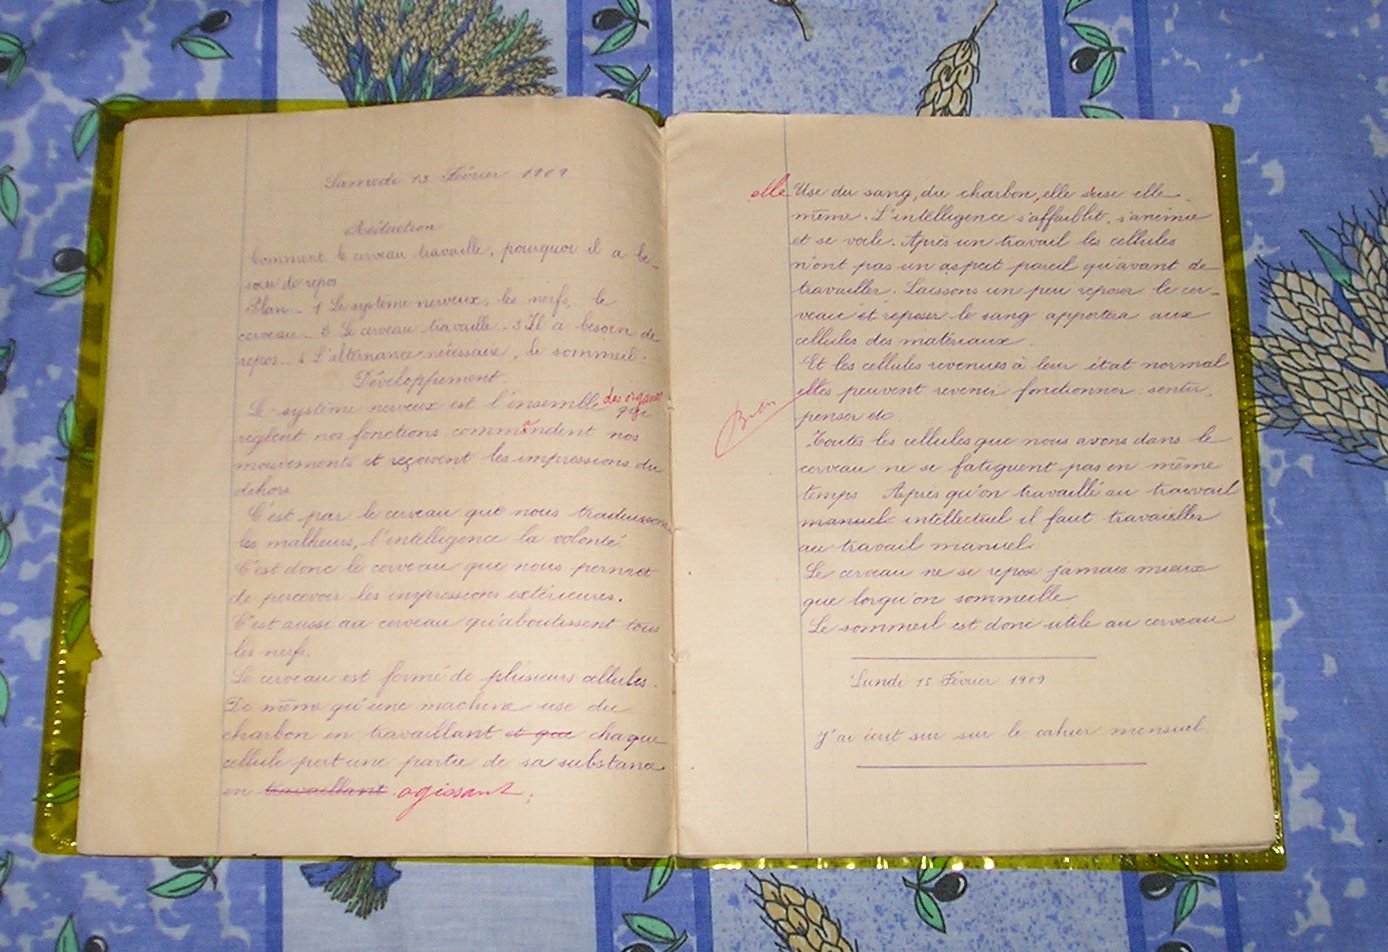 Samedi 13 Février 1909
Rédaction
Comment le cerveau travaille, pourquoi il a be-
soin de repos
Plan - 1 Le système nerveux, les nerfs, le
cerveau - 2 Le cerveau travaille - 3 Il a besoin de
repos - 4 L'alternance nécessaire, le sommeil.
Développement
Le système nerveux est l'ensemble des organes qui
règlent nos fonctions commandent nos
mouvements et reçoivent les impressions du
dehors
C'est par le cerveau que nous traduisons
les malheurs, l'intelligence la volonté
C'est donc le cerveau que nous permet
de percevoir les impressions extérieures.
C'est aussi au cerveau qu'aboutissent tous
les nerfs.
Le cerveau est formé de plusieurs cellules.
De même qu'une machine use du
charbon en travaillant et que chaque
cellule pert une partie de sa substance
en travaillant agissant;
elle Use du sang, du charbon, elle s'use elle
même. L'intelligence s'affaiblit, s'anémie
et se voile. Après un travail les cellules
n'ont pas un aspect pareil qu'avant de
travailler. Laissons un peu reposer le cer-
veau et reposer le sang apportera aux
cellules des matériaux.
Et les cellules revenues à leur état normal
elles peuvent revenir fonctionner : sentir,
penser etc
Bien
Toutes les cellules que nous avons dans le
cerveau ne se fatiguent pas en même
temps Après qu'on travaillé au travail
manuel intellectuel il faut travailler
au travail manuel
Le cerveau ne se repose jamais mieux
que lorqu'on sommeille
Le sommeil est donc utile au cerveau
Lundi 15 Février 1909
J'ai écrit sur sur le cahier mensuel.